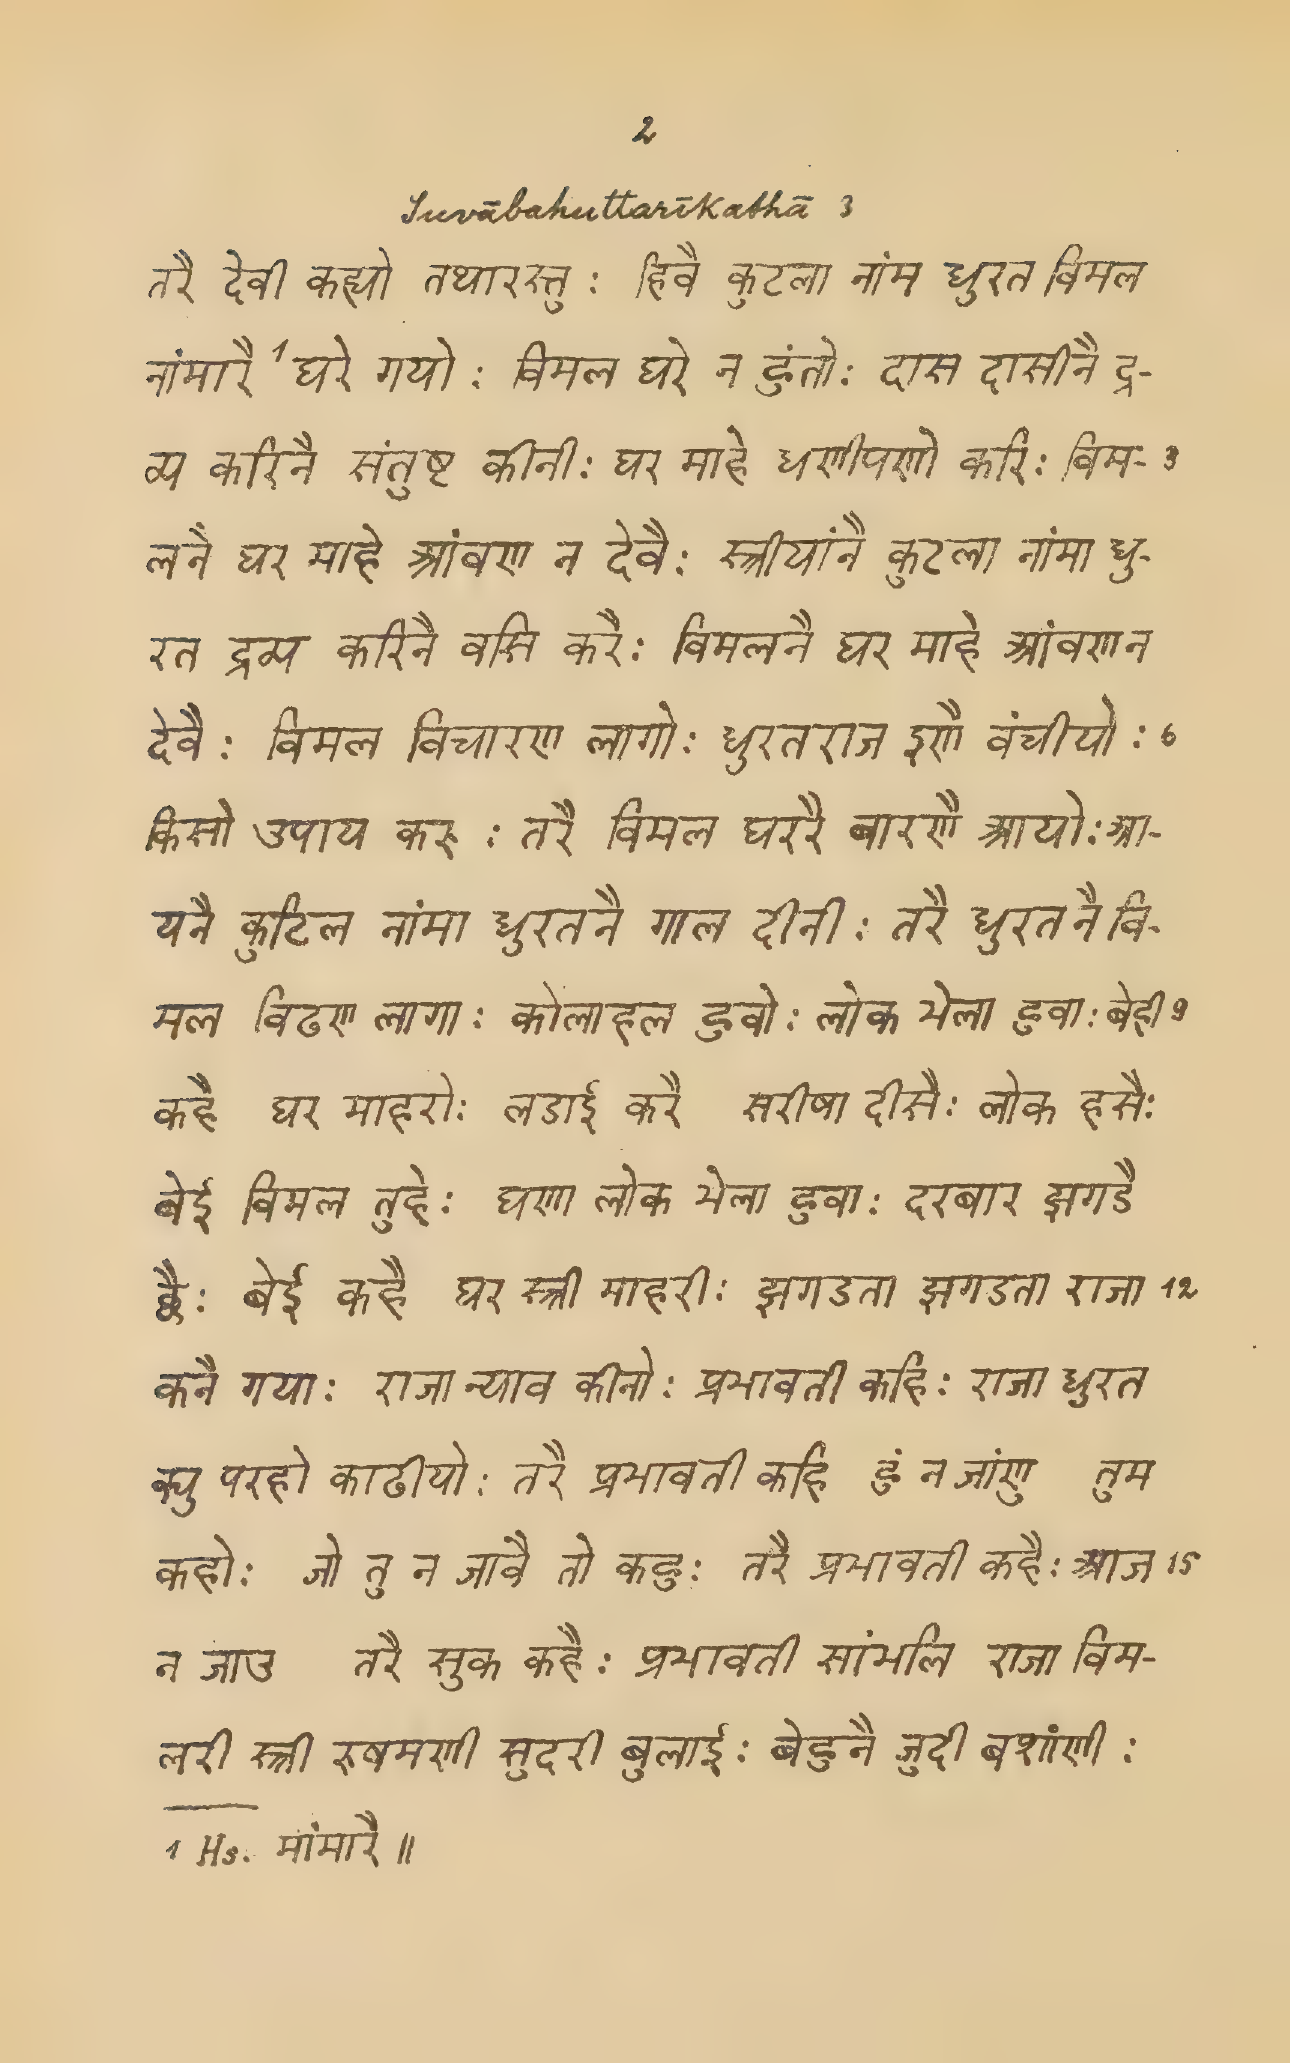 2
Suvābahuttarīkathā 3
तरै देवी कह्यो तथारस्तु : हिवै कुटला नांम धुरत विमल
नांमारै ¹ घरे गयो : विमल घरे न हुंतो : दास दासीनै द्र-
व्य करिनै संतुष्ट कीनी : घर माहे धणीपणो करि : विम- 3
लनै घर माहे आंवण न देवै : स्त्रीयांनै कुटला नांमा धु-
रत द्रव्य करिनै वसि करै : विमलनै घर माहे आंवण न
देवै : विमल विचारण लागो : धुरतराज इणै वंचीयो : 6
किसो उपाय करू : तरै विमल घररै बारणै आयो : आ-
यनै कुटिल नांमा धुरतनै गाल दीनी : तरै धुरतनै वि-
मल विढण लागा : कोलाहल हुवो : लोक भेला हुवा : बेही 9
कहै घर माहरो : लडाई करै सरीषा दीसै : लोक हसै :
बेई विमल तुहे : घणा लोक भेला हुवा : दरबार झगडै
छै : बेई कहै घर स्त्री माहरी : झगडता झगडता राजा 12
कनै गया : राजा न्याव कीनो : प्रभावती कहि : राजा धुरत
क्यु परहो काढीयो : तरै प्रभावती कहि हुं न जांणु तुम
कहो : जो तु न जावै तो कहु : तरै प्रभावती कहै : आज 15
न जाउ तरै सुक कहै : प्रभावती सांभलि राजा विम-
लरी स्त्री रुषमणी सुदरी बुलाई : बेहुनै जुदी बशांणी :
1 Hs. मांमारै ॥